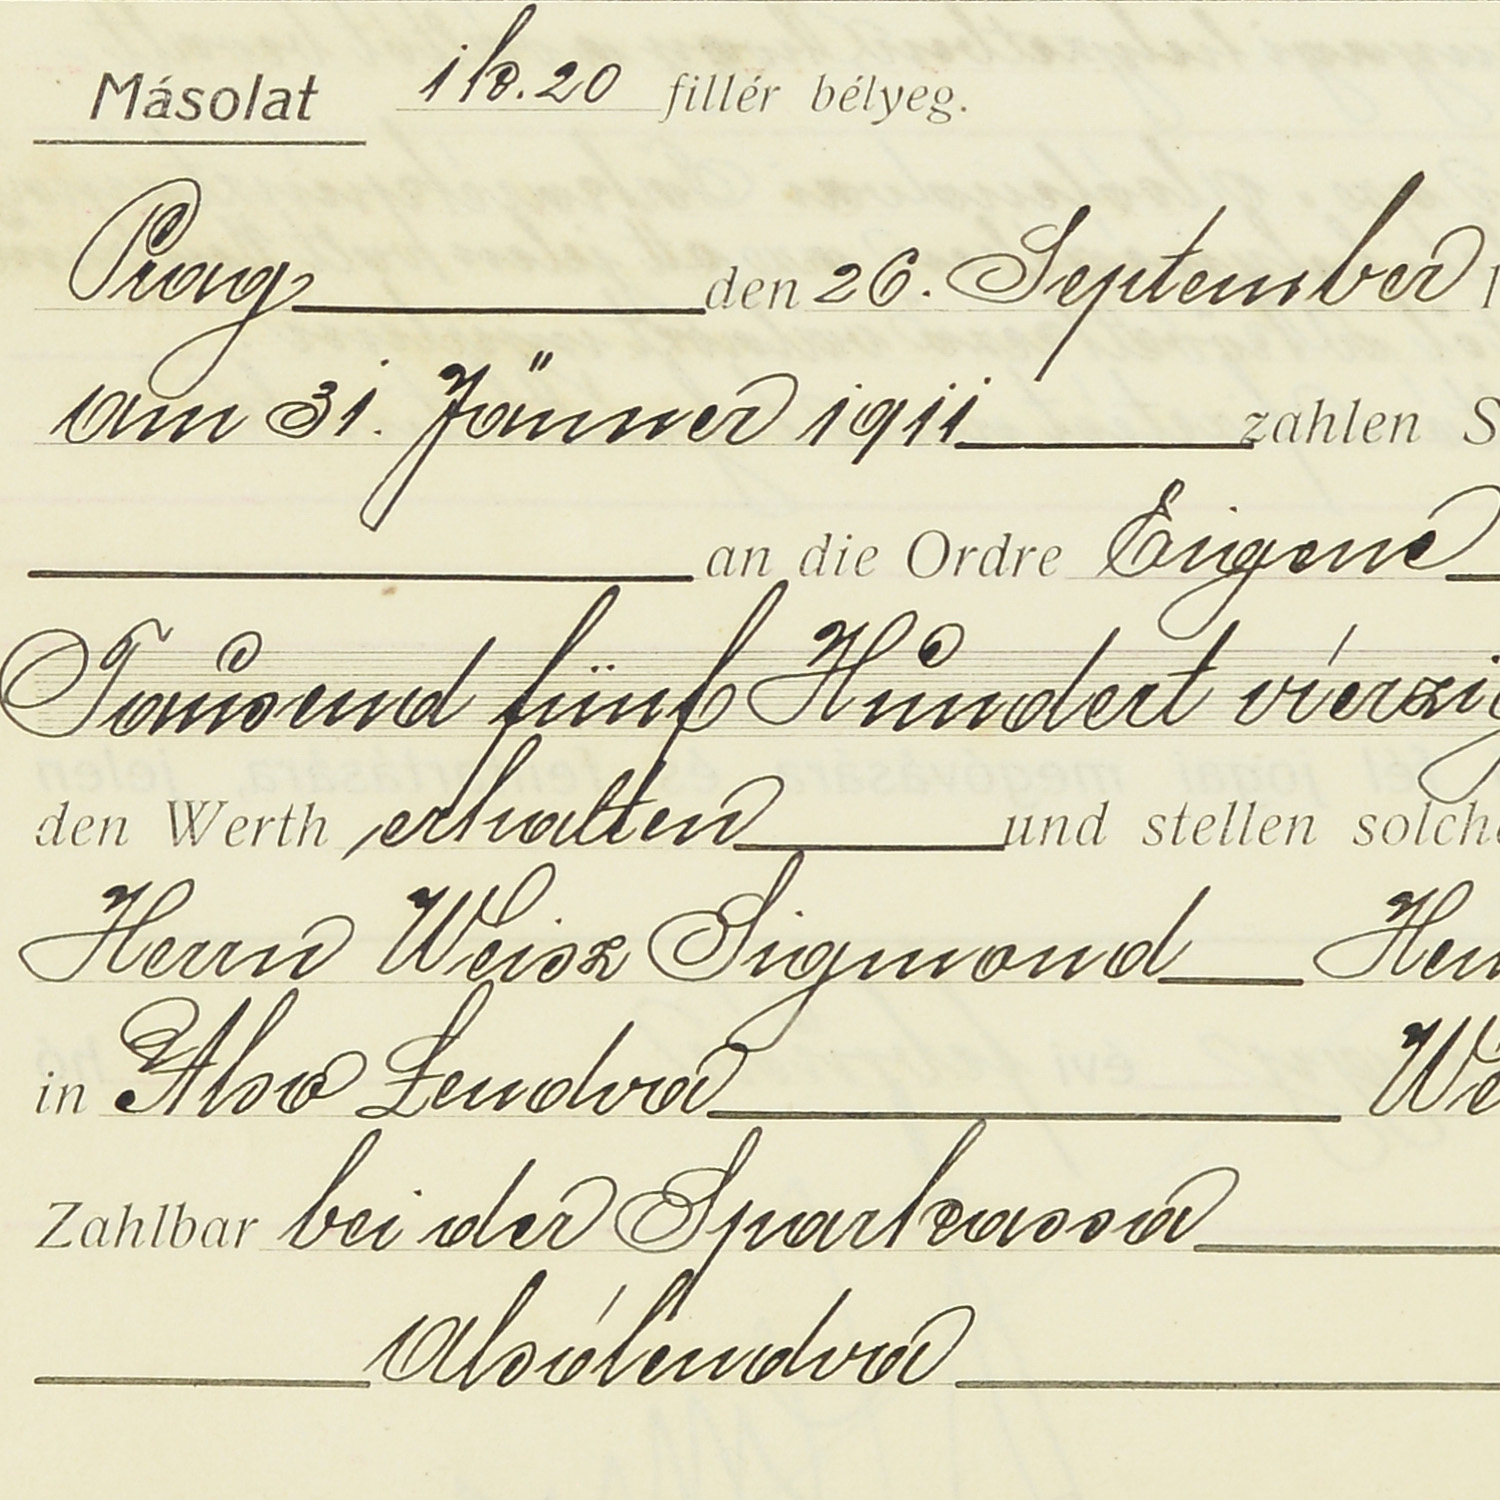 Másolat 1 K. 20 fillér bélyeg.
Prag den 26. September
am 31. Jänner 1911 zahlen S
an die Ordre Eigene
Tausend fünf Hundert vierzig
den Werth erhalten und stellen solche
Herrn Weisz Sigmond Herr
in Alsó Lendva We
Zahlbar bei der Sparkassa
Alsólendva